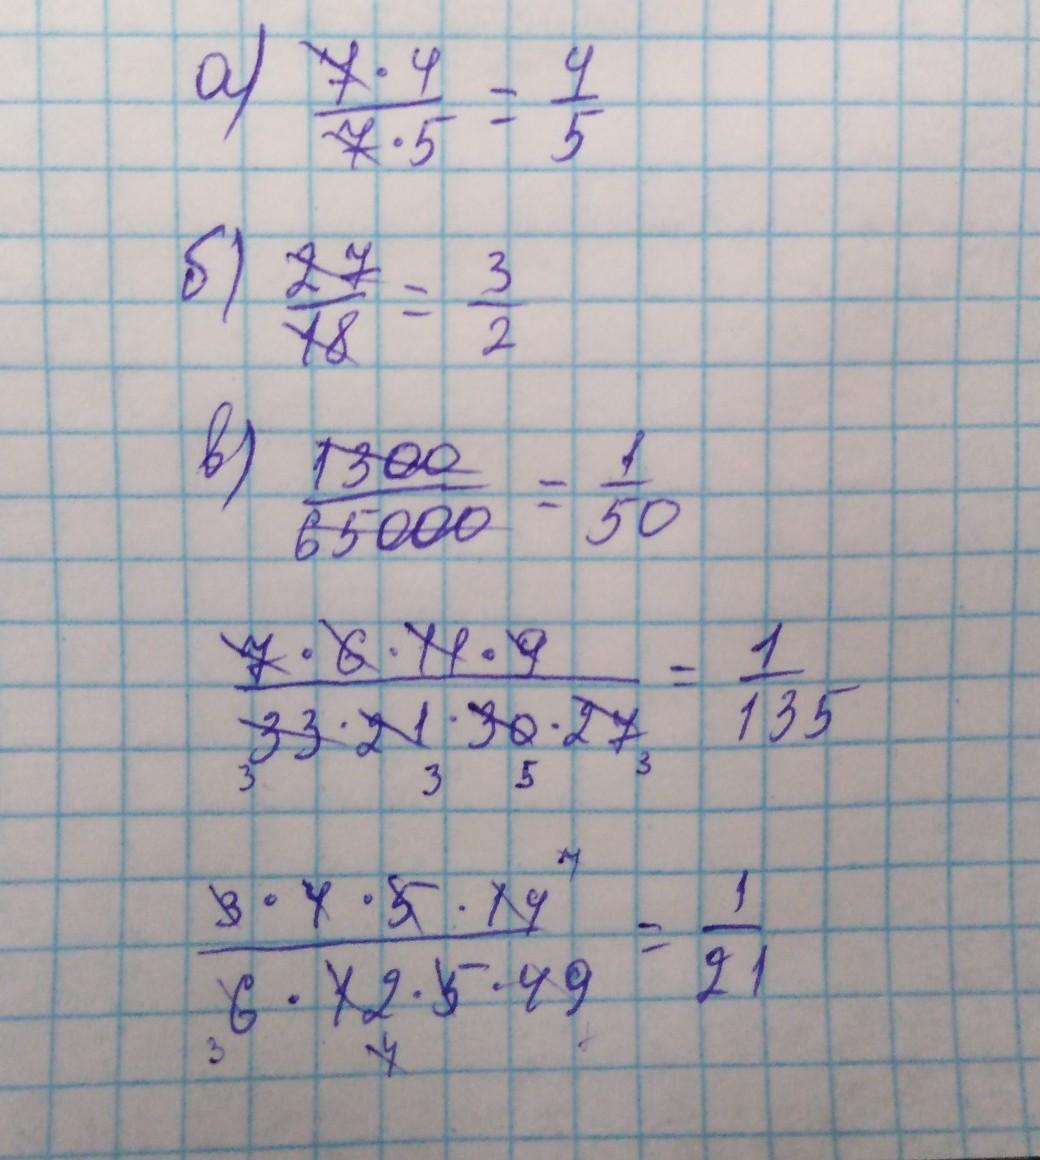 а) 7 · 4 / 7 · 5 = 4 / 5
б) 27 / 18 = 3 / 2
в) 1300 / 65000 = 1 / 50
7 · 6 · 11 · 9 / 33 · 21 · 30 · 27 = 1 / 135
3 3 5 3
7
3 · 4 · 5 · 14 / 6 · 12 · 5 · 49 = 1 / 21
3 4